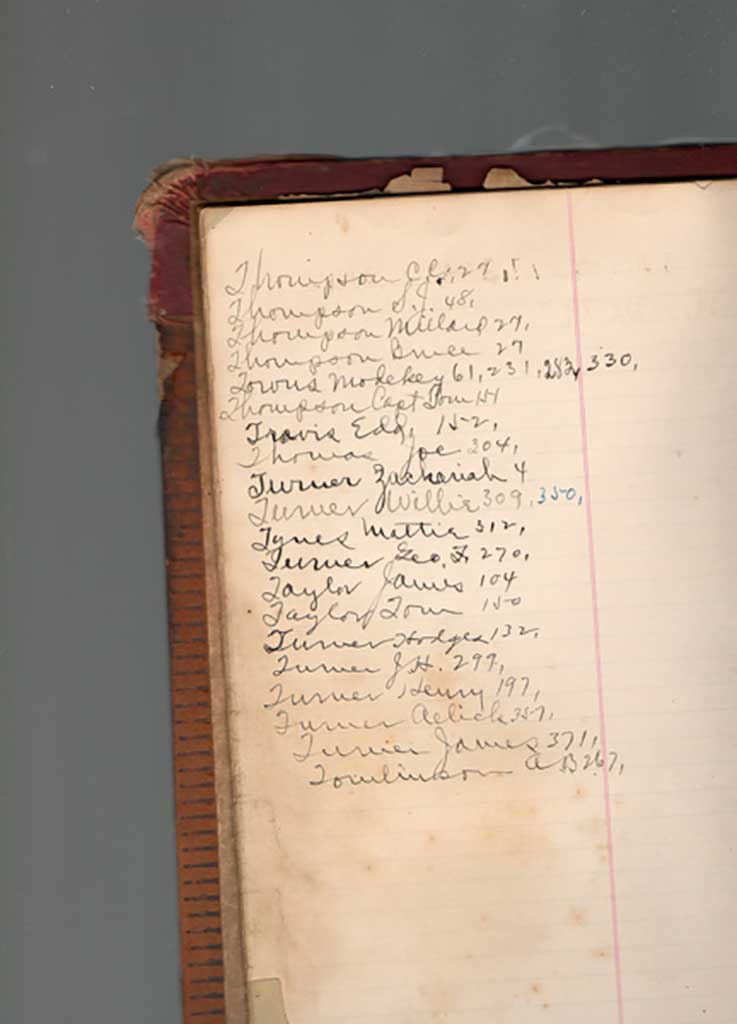 Thompson C.C., 27,
Thompson S.J. 48,
Thompson Millard 27,
Thompson Bruce 27
Towns Modekey 61, 231, 283, 330,
Thompson Capt Tom 151
Travis Edd, 152,
Thomas Joe 304,
Turner Zachariah 4
Turner Willie 309, 350,
Tynes Mattie 312,
Turner Geo. F. 270,
Taylor James 104
Taylor Tom 150
Turner Hodges 132,
Turner J.H. 299,
Turner Henry 197,
Turner Aelick 357,
Turner James 371,
Tomlinson A B 267,